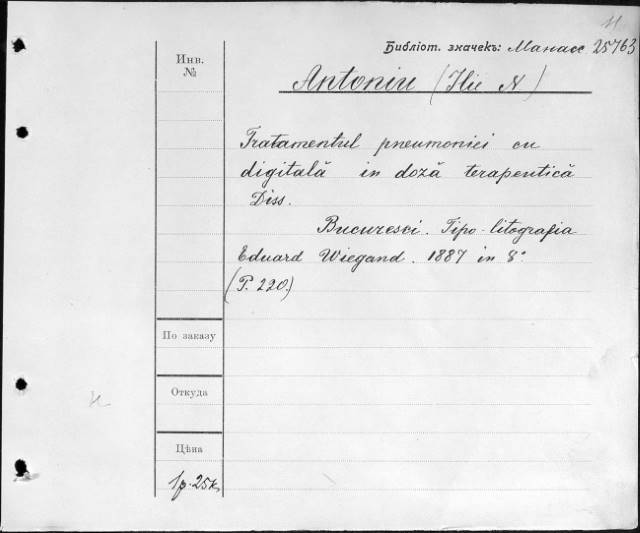 Библіот. значекъ: Манасс 25763
Инв.
№
Antoniu (Ilie N)
Tratamentul pneumoniei cu
digitală in doză terapeutică
Diss.
Bucuresci. Tipo-litografia
Eduard Wiegand. 1887 in 8°
(P. 220.)
По заказу
Откуда
Цѣна
1р. 25к.